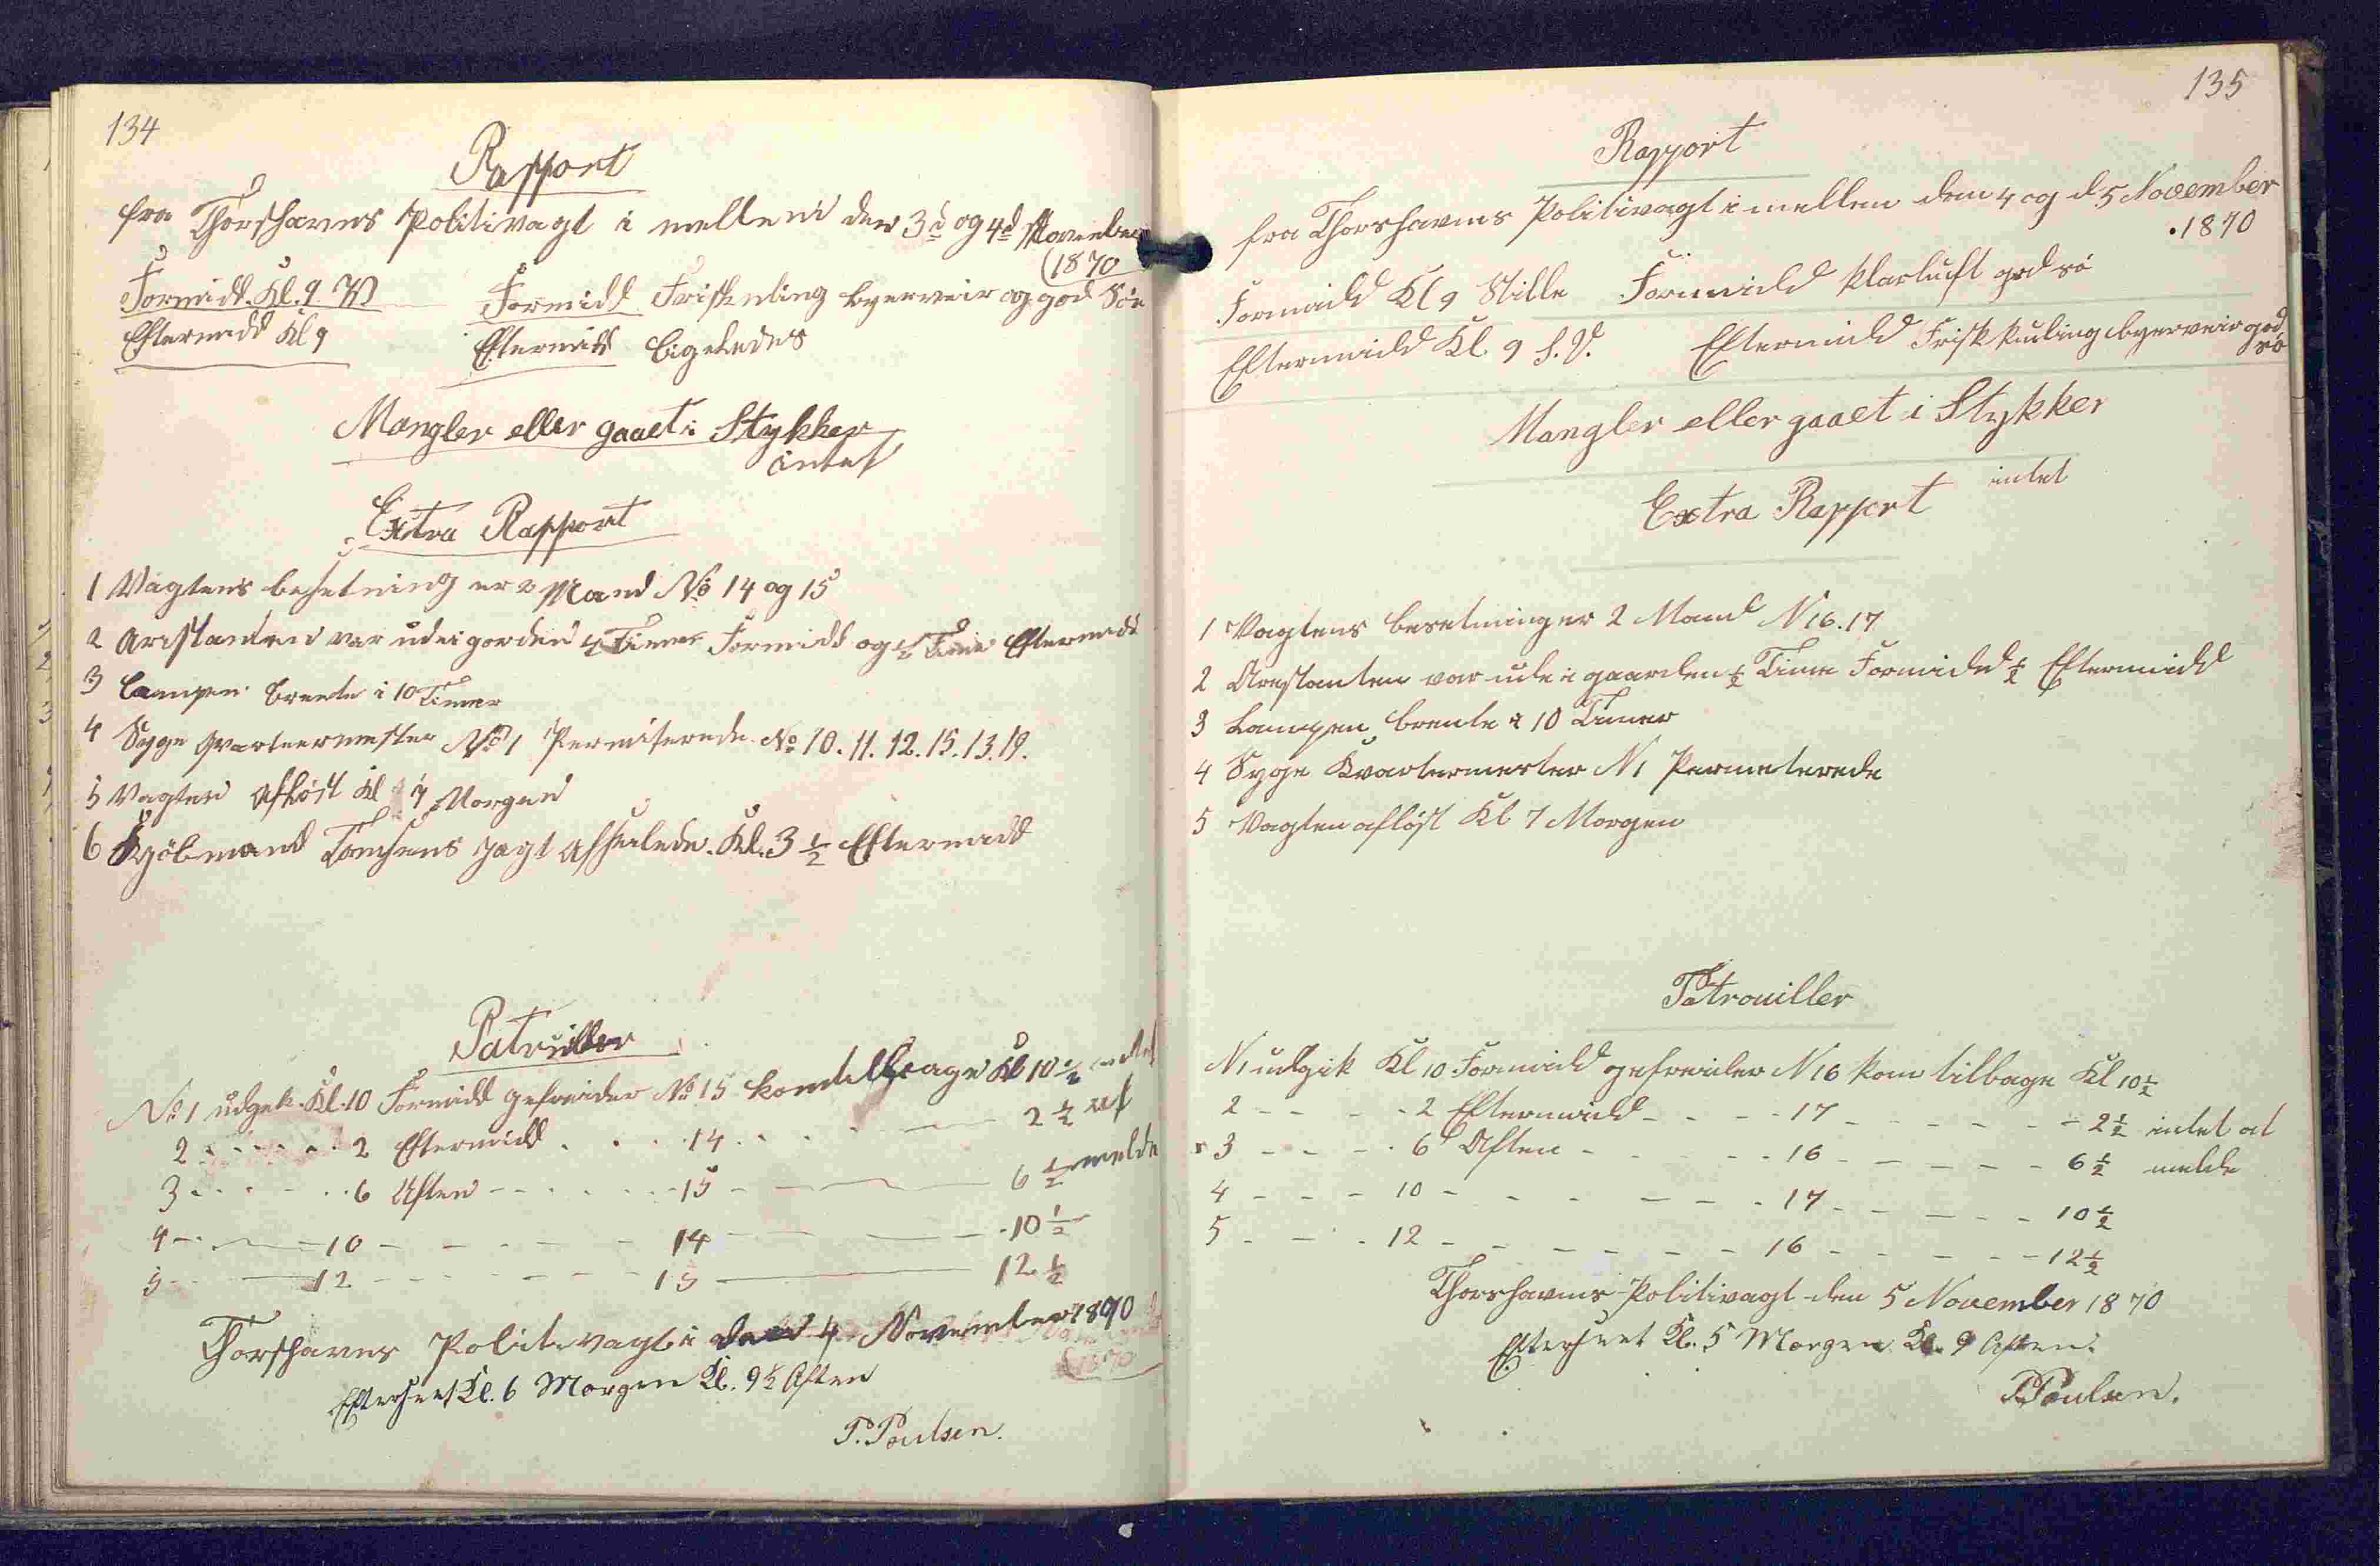 134
Rapport
fra Thorshavns Politivagt i mellem den 3d og 4d November
(1870
Formidd. Kl. 9 Formidd Friskuling byerveir og god Sö
Eftermidd Kl 9 Eftermidd ligeledes
Mangler eller gaaet i Stykker
intet
Extra Rapport
1 Vagtens besetning er 2 Mand No 14 og 15
2 Arestanten var ude i gorden ½ Time Formidd og ½ Time Eftermidd
3 Lampen brente i 10 Timer
4 Syge Qvarteermester No 1 Permiterede No 10. 11. 12. 15. 13. 19.
5 Vagten Aflöst Kl 7 Morgen
6 Kjöbmand Tomsens Jagt Afseilede Kl. 3 ½ Eftermidd
Patruller
No 1 udgek. Kl. 10 Formidd gefreider No 15 kom tilbage Kl 10 ½ intet
2 - - - - 2 Eftermidd - - - 14 - - - 2 ½ at
3 - - - - 6 Aften - - - 15 - - - 6 ½ melde
4 - - - 10 - - - 14 - - - 10 ½
5 - - - 12 - - - 15 - - - 12 ½
Thorshavns Politivagt i den 4 November 1870
Efterseet Kl. 6 Morgen Kl. 9½ Aften
P. Poulsen.
135
Rapport
fra Thorshavns Politivagt i mellem dem 4 og d. 5 November
1870
Formidd Kl 9 Stille Formidd Klarluft god sö
Eftermidd Kl. 9 S. V. Eftermidd Frisk kuling byerveir god
sö
Mangler eller gaaet i Stykker
intet
Extra Rapport
1 Vagtens besetning er 2 Mand N 16. 17
2 Arestanten var ude i gaarden ½ Time Formidd ½ Eftermidd
3 Lampen brente i 10 Timer
4 Syge Kvartermester N 1 Permeterede
5 Vagten aflöst Kl 7 Morgen
Patrouiller
N 1 udgik Kl 10 Formidd gefreider N 16 kom tilbage Kl 10½
2 - - - 2 Eftermidd - - - 17 - - - 2½ intet at
3 - - - 6 Aften - - - 16 - - - 6½ melde
4 - - - 10 - - - 17 - - - 10½
5 - - - 12 - - - 16 - - - 12½
Thorshavns Politivagt den 5 November 1870
Efterseet Kl. 5 Morgen Kl. 9 Aften.
P. Poulsen.